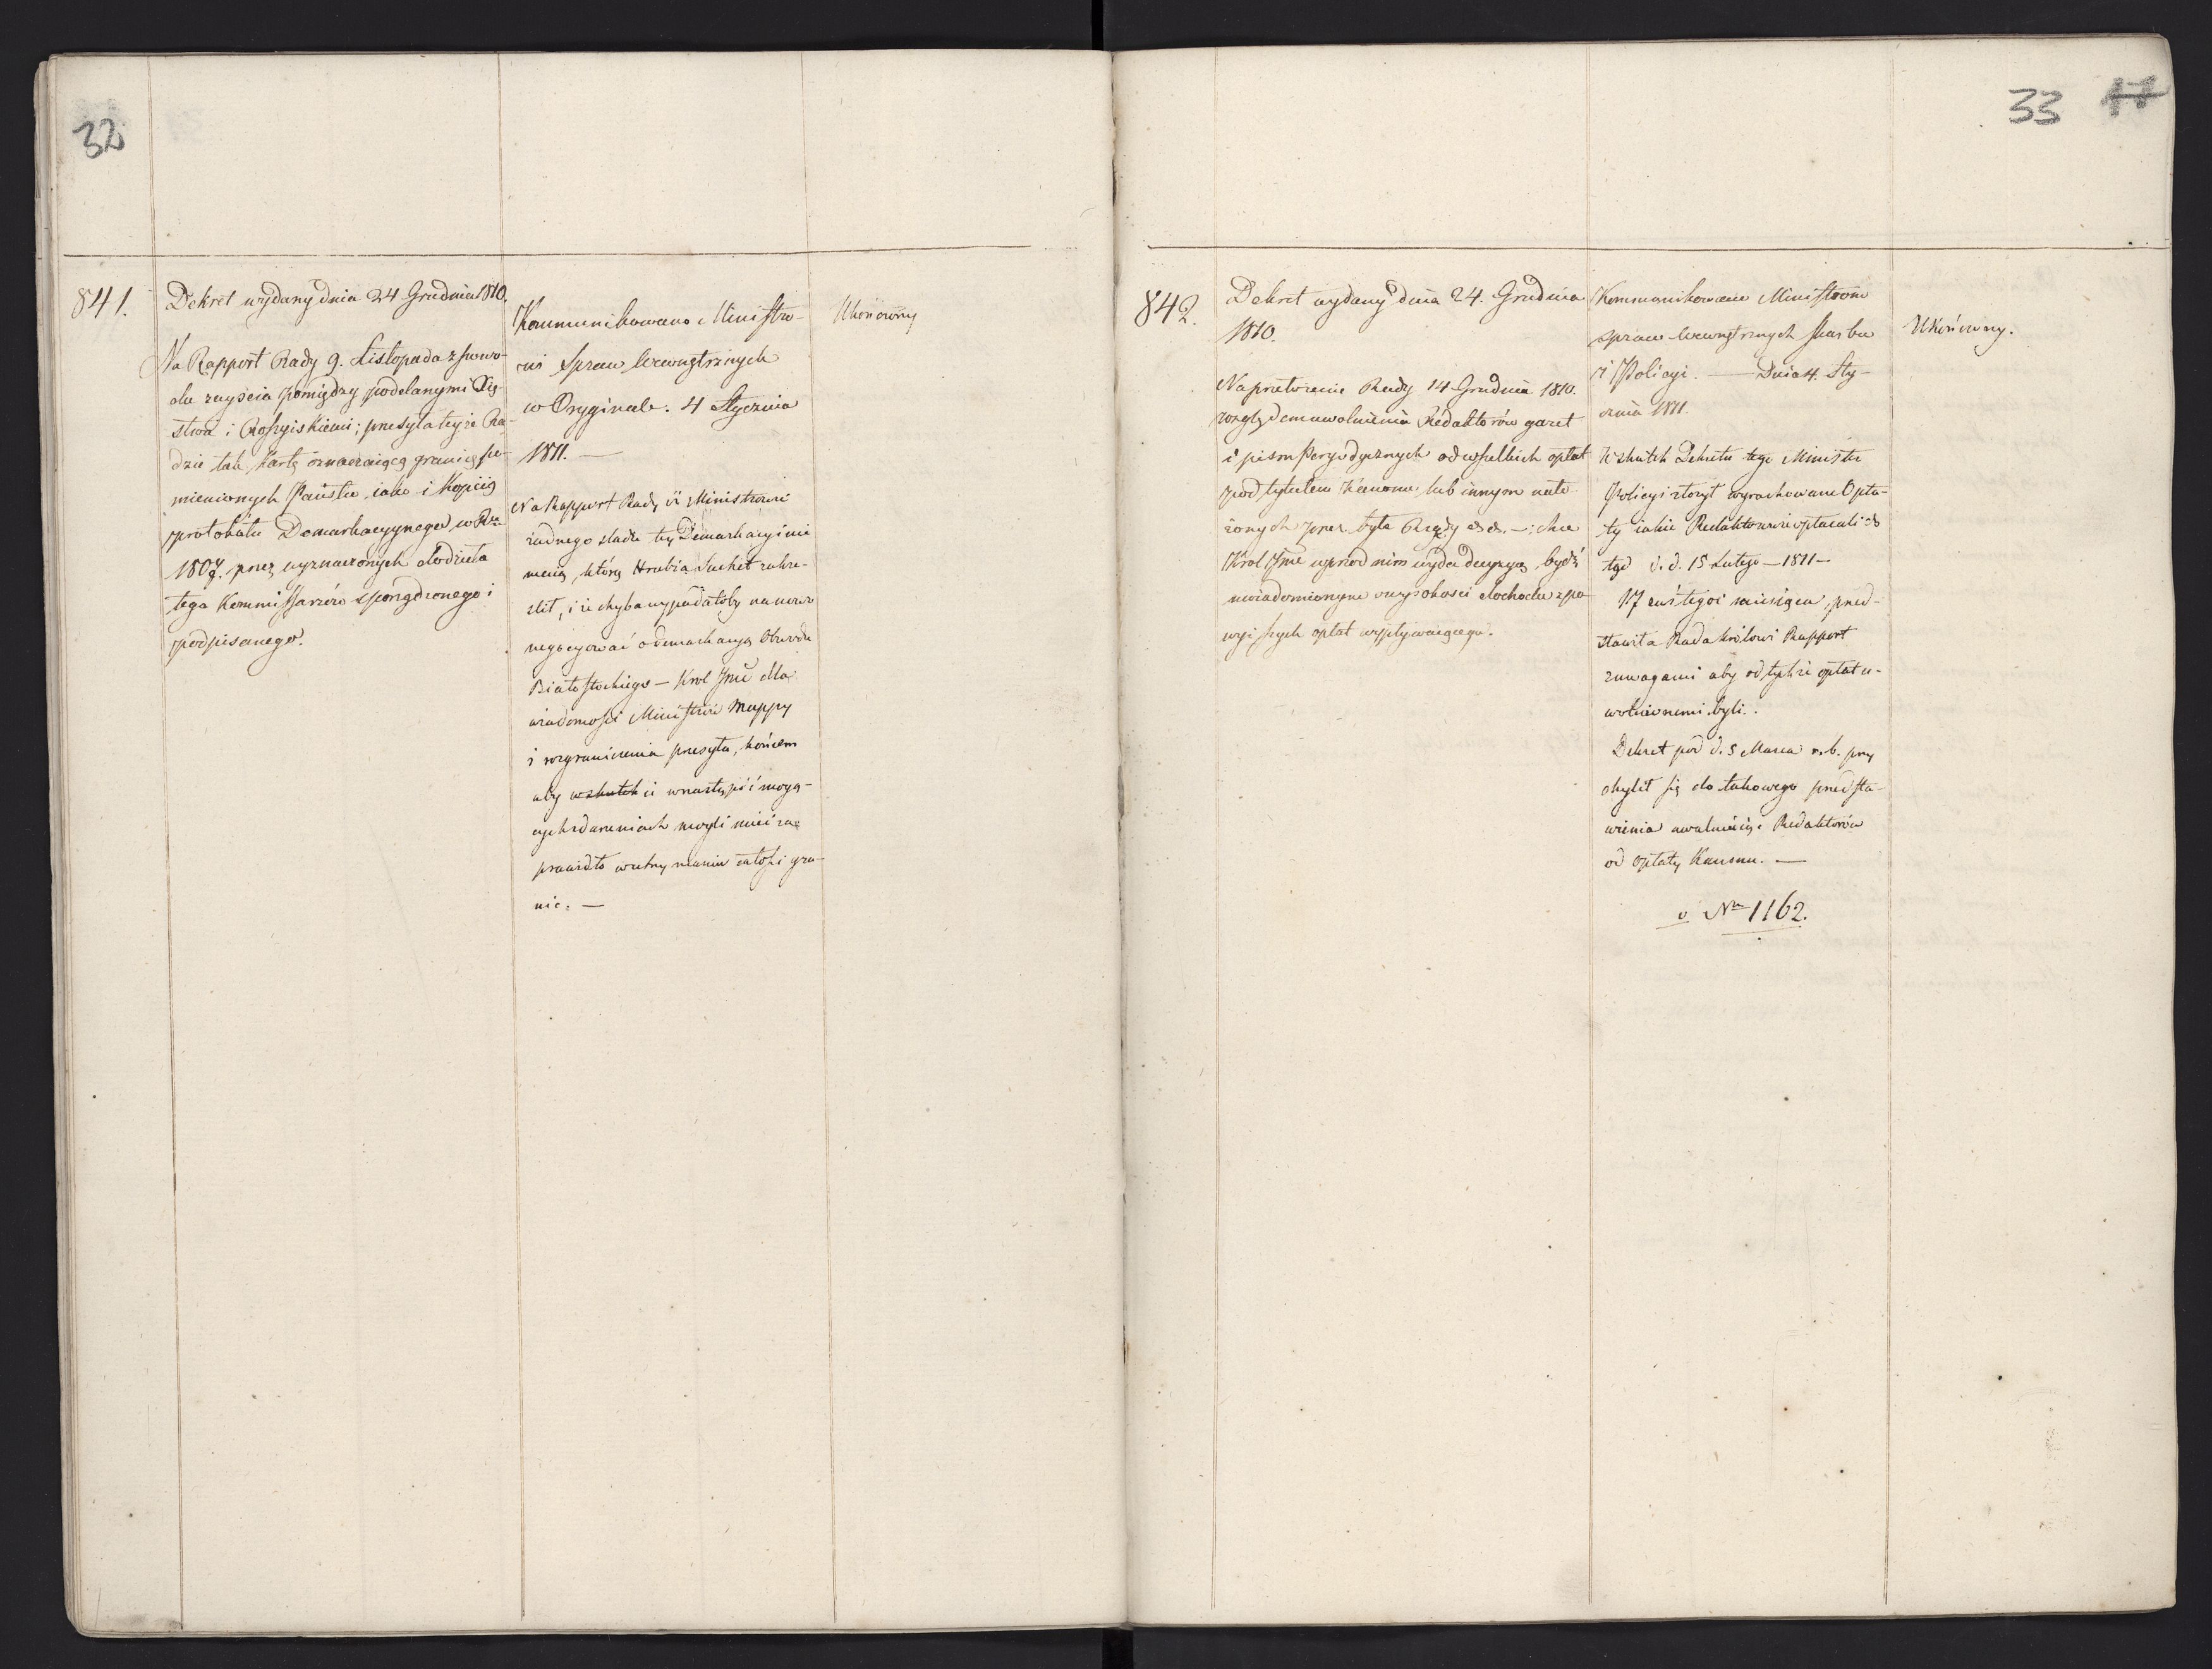 32
841.
Dekret wydany dnia 24 Grudnia 1810.
Na Rapport Rady 9. Listopada z powo-
du zayścia pomiędzy poddanymi Xię-
stwa i Rossyiskiemi; przesyła teyże Ra-
dzie tak Kartę oznaczaiącą granicę po-
mienionych Państw, iako i Kopiią
protokułu Demarkacyynego w Ru
1807. przez wyznaczonych do dzieła
tego Kommissarzów sporządzonego i
podpisanego.
Kommunikowano Ministro-
wi Spraw Wewnętrznych
w Oryginale. 4 Stycznia
1811. —
Na Rapport Rady iż Ministrowie
żadnego śladu tey Demarkacyi nie
maią, którą Hrabia Suchet zakre-
slił, i że chyba wypadałoby na nowo
negocyować o demarkacyą Obwodu
Białostockiego — Krol Jmć dla
wiadomości Ministrów Mappy
i rozgraniczenia przesyła, końcem
aby w skutek ci w nastąpić mogą-
cych zdarzeniach mogli mieć za
prawidło w utrzymaniu całości gra-
nic. —
Ukończony
33 17
842.
Dekret wydany dnia 24. Grudnia
1810.
Na przełożenie Rady 14 Grudnia 1810.
względem uwolnienia Redaktorów gazet
i pism peryodycznych od wszelkich opłat
pod tytułem Kanonu lub innym nało-
żonych przez byłe Rządy — chce
Król Jmć wprzod nim wyda decyzyą, bydź
uwiadomionym o wysokości dochodu z po-
wyższych opłat wypływaiącego.
Kommunikowano Ministrom
spraw wewnętrznych skarbu
i Policyi. — Dnia 4. Sty-
cznia 1811.
W skutek Dekretu tego Minister
Policyi złożył wyrachowanie Opła-
ty iakie Redaktorowie opłacali do
tąd d. d. 15 Lutego — 1811 —
17 zaś tegoż miesiąca, przed-
stawiła Rada królowi Rapport
z uwagami aby od tychże opłat u-
wolnionemi byli.
Dekret pod d. 5 Marca r. b. przy
chylił się do takowego przedsta-
wienia uwalniaiąc Redaktorów
od opłaty Kanonu. —
v Nro 1162.
Ukończony.